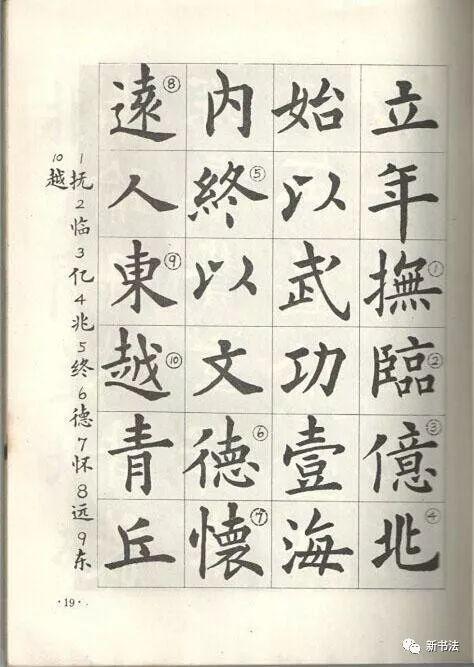 立年撫臨②億③兆④
始以武功壹海
内終⑤以文德⑥懷⑦
遠⑧人東⑨越⑩青丘
1抚2临3亿4兆5终6德7怀8远9东
10越
·19·
新书法